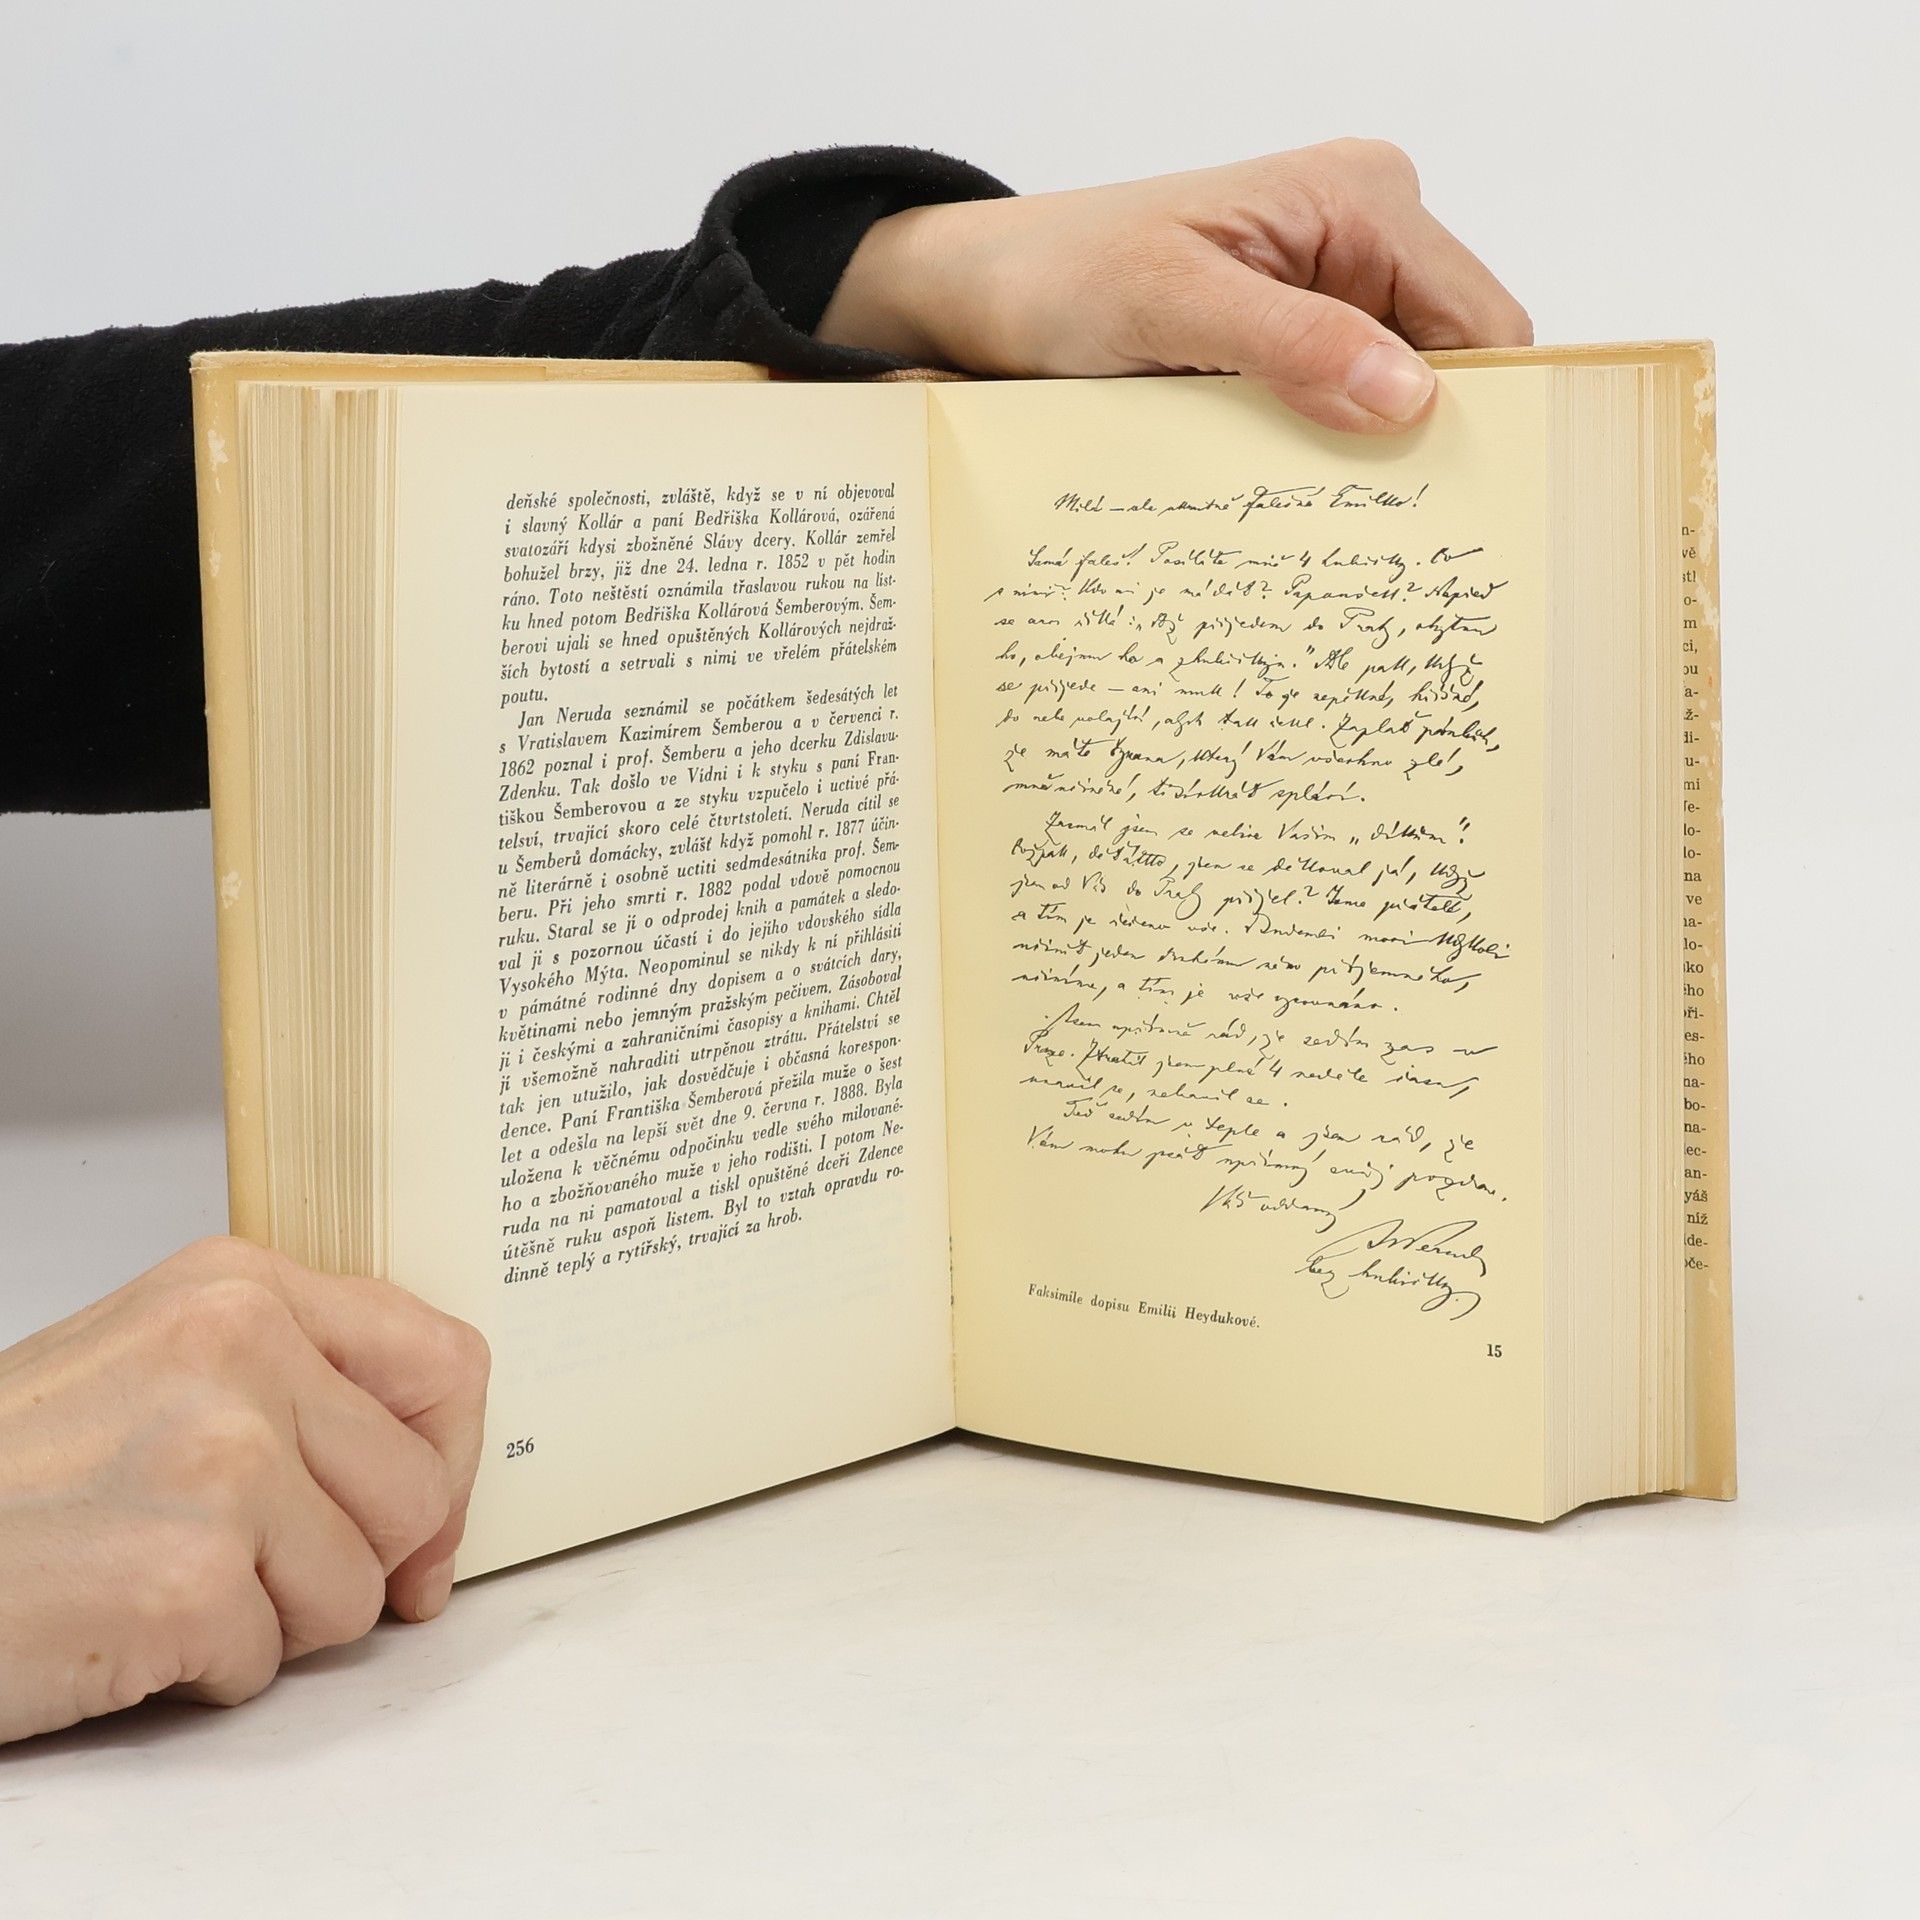 deňské společnosti, zvláště, když se v ní objevoval
i slavný Kollár a paní Bedřiška Kollárová, ozářená
svatozáří kdysi zbožněné Slávy dcery. Kollár zemřel
bohužel brzy, již dne 24. ledna r. 1852 v pět hodin
ráno. Toto neštěstí oznámila třaslavou rukou na líst-
ku hned potom Bedřiška Kollárová Šemberovým. Šem-
berovi ujali se hned opuštěných Kollárových nejdraž-
ších bytostí a setrvali s nimi ve vřelém přátelském
poutu.
Jan Neruda seznámil se počátkem šedesátých let
s Vratislavem Kazimírem Šemberou a v červenci r.
1862 poznal i prof. Šemberu a jeho dcerku Zdislavu-
Zdenku. Tak došlo ve Vídni i k styku s paní Fran-
tiškou Šemberovou a ze styku vzpučelo i uctivé přá-
telsví, trvající skoro celé čtvrtstoletí. Neruda cítil se
u Šemberů domácky, zvlášť když pomohl r. 1877 účin-
ně literárně i osobně uctiti sedmdesátníka prof. Šem-
beru. Při jeho smrti r. 1882 podal vdově pomocnou
ruku. Staral se jí o odprodej knih a památek a sledo-
val ji s pozornou účastí i do jejího vdovského sídla
Vysokého Mýta. Neopominul se nikdy k ní přihlásiti
v památné rodinné dny dopisem a o svátcích dary,
květinami nebo jemným pražským pečivem. Zásoboval
ji i českými a zahraničními časopisy a knihami. Chtěl
jí všemožně nahraditi utrpěnou ztrátu. Přátelství se
tak jen utužilo, jak dosvědčuje i občasná korespon-
dence. Paní Františka Šemberová přežila muže o šest
let a odešla na lepší svět dne 9. června r. 1888. Byla
uložena k věčnému odpočinku vedle svého milované-
ho a zbožňovaného muže v jeho rodišti. I potom Ne-
ruda na ni pamatoval a tiskl opuštěné dceři Zdence
útěšně ruku aspoň listem. Byl to vztah opravdu ro-
dinně teplý a rytířský, trvající za hrob.
256
Milá — ale falešná Emilko!
Samá faleš! Posíláte mně 4 hubičky. Co
s nimi? Kdo mi je má dát? Papoušek? Napřed
se říká: „Až přijedem do Prahy,
ho, obejmu ho a zhubičkuju." Ale pak, když
se přijede — ani muk! To je nepěkné, hříšné,
do nebe volající, abych tak řekl. Zaplať pánbůh,
že máte, který Vám všechno zlé,
mně učiněné, tisíckrát splácí.
Zasmál jsem se Vašim „díkům"!
Copak, děťátko, jsem se děkoval já, když
jsem od Vás do Prahy přijel? Jsme přátelé,
a tím je řečeno vše. moci kdykoli
učinit jeden druhému něco příjemného,
učiníme, a tím je vše vyrovnáno.
Jsem upřímně rád, že sedím zas v
Praze. Ztratil jsem plné 4 neděle času,
unavil se, nebavil se.
Teď sedím v teple a jsem rád, že
Vám mohu psát upřímný svůj pozdrav.
Váš oddaný
JNeruda
bez hubičky.
Faksimile dopisu Emilii Heydukové.
15